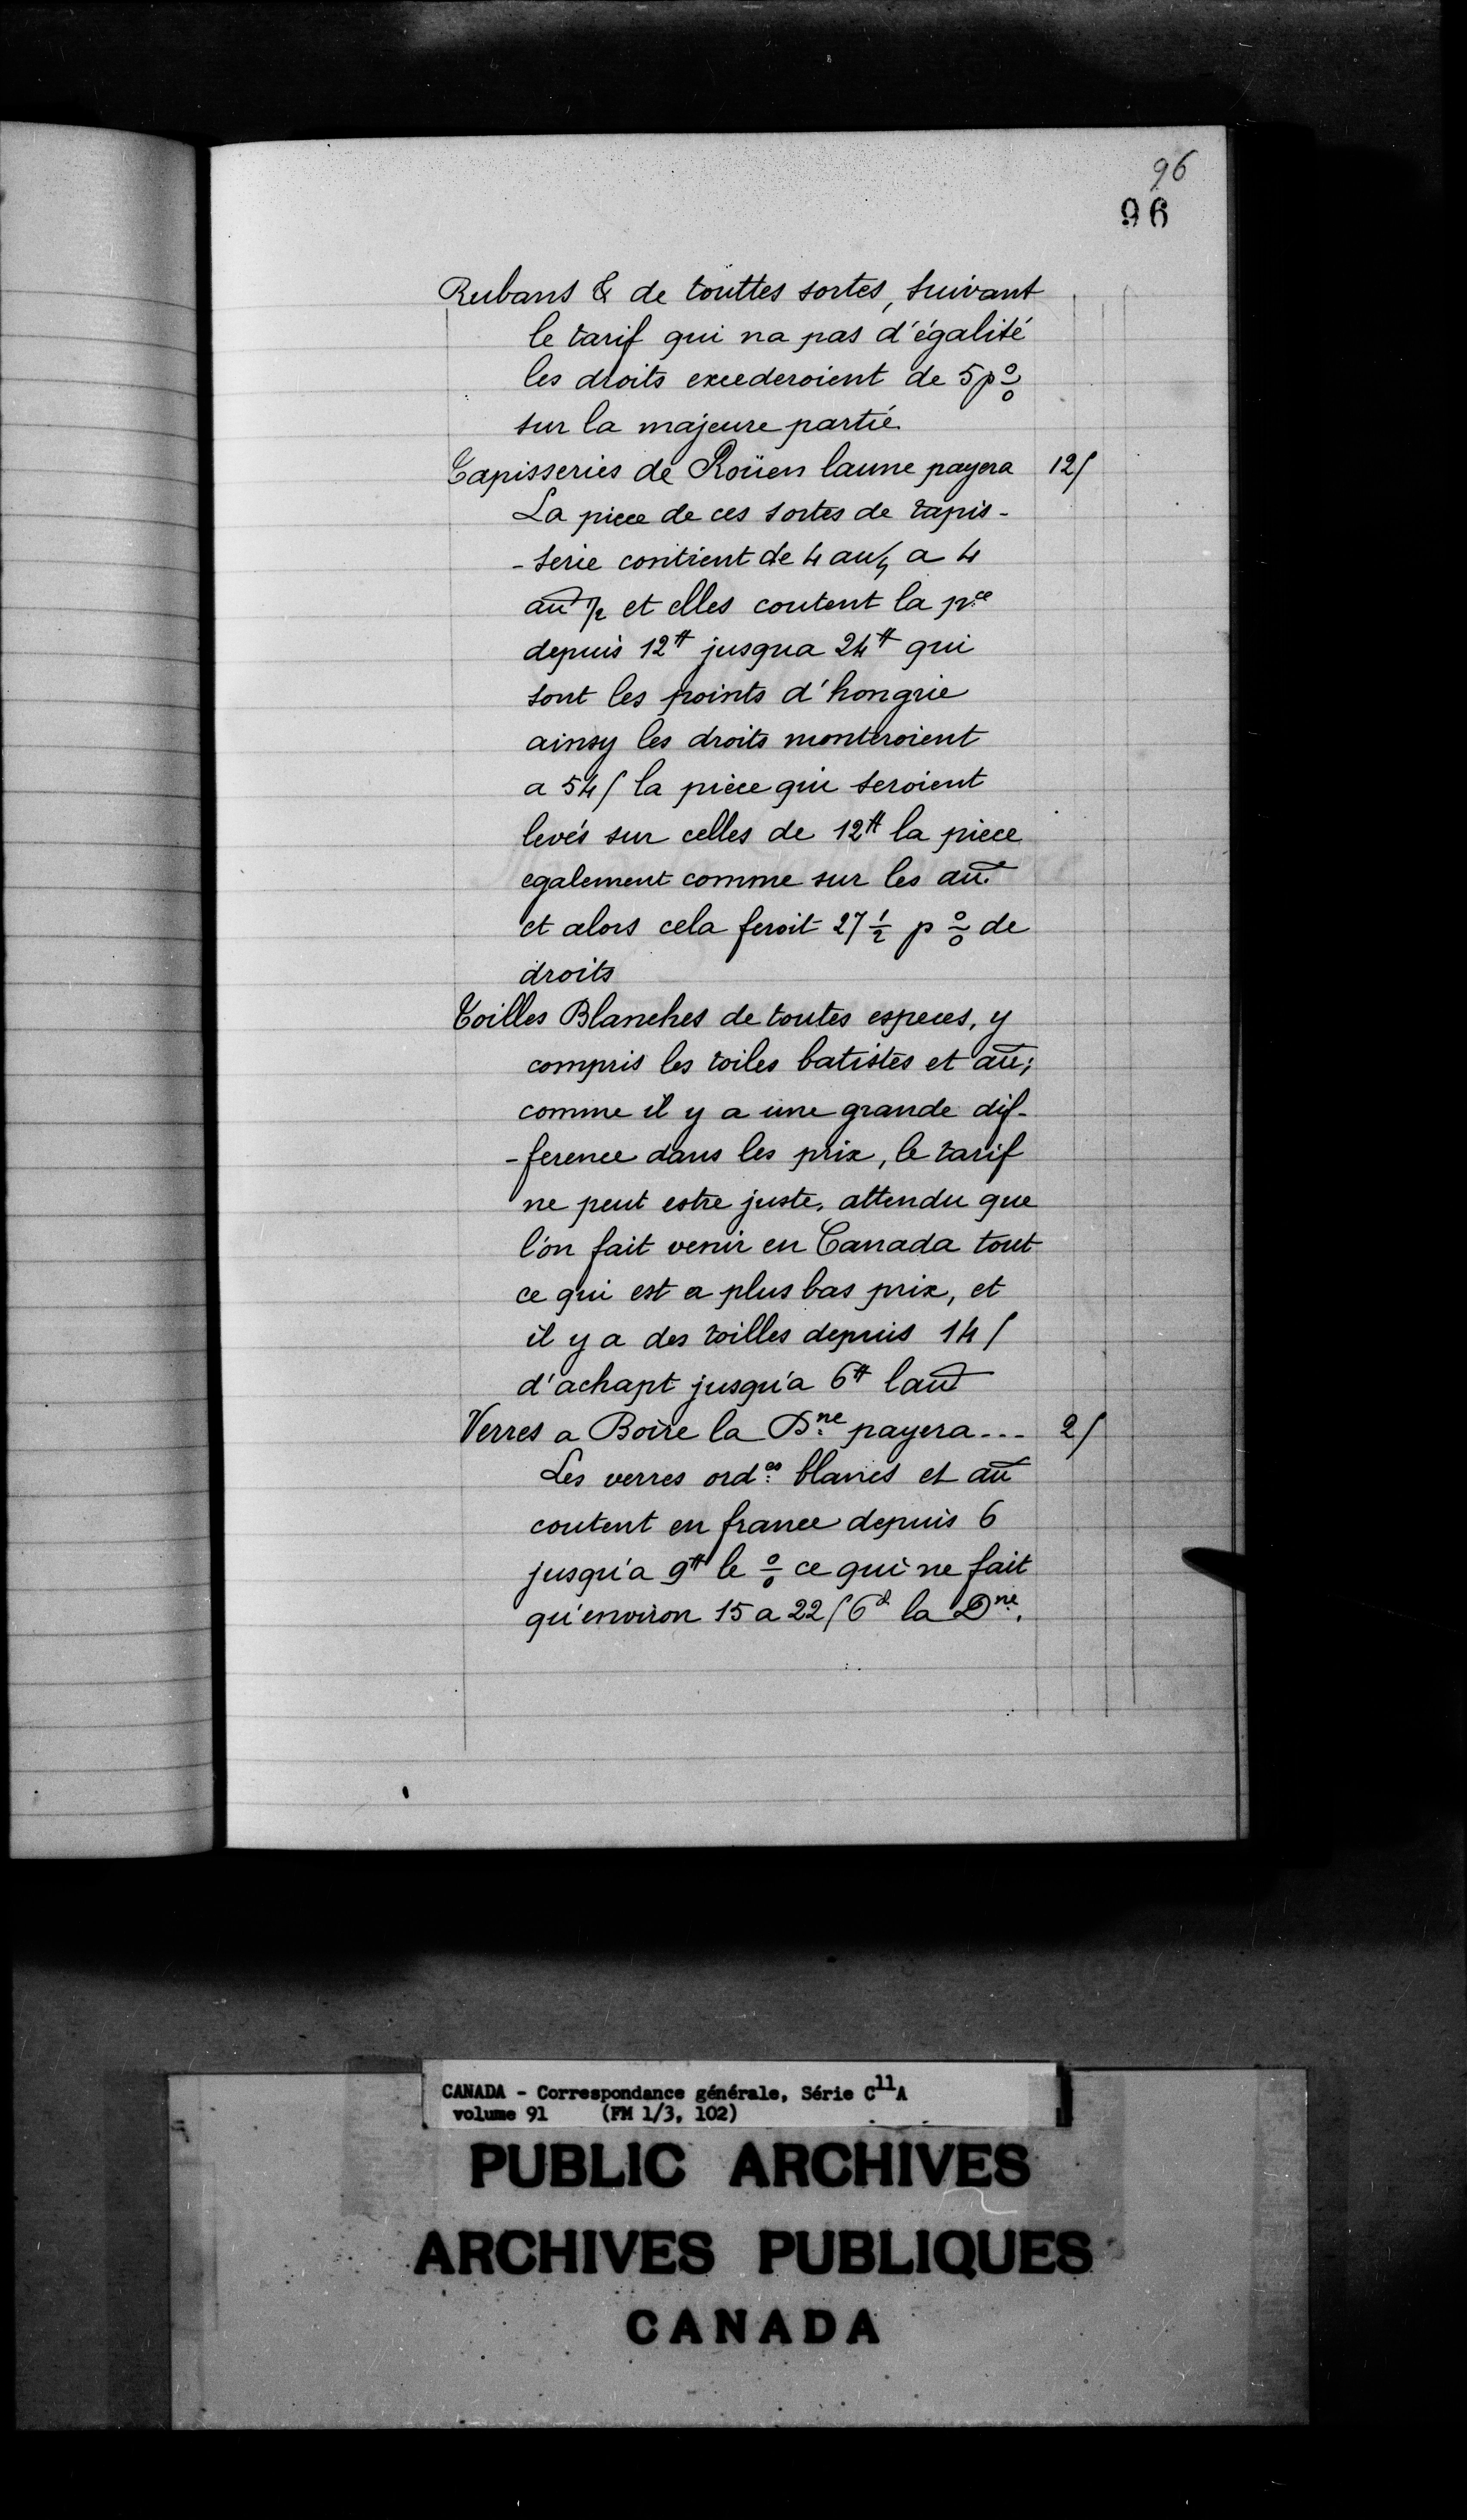 96
96
Rubans & de touttes sortes, suivant
le tarif qui na pas d'égalité
les droits excederoient de 5 p %
sur la majeure partie
Tapisseries de Roüen laune payera 12ſ
La piece de ces sortes de tapis-
-serie contient de 4 au/ a 4
au ½ et elles coutent la pce
depuis 12# jusqua 24# qui
sont les points d'hongrie
ainsy les droits monteroient
a 54ſ la pièce qui seroient
levés sur celles de 12# la piece
egalement comme sur les au.
et alors cela feroit 27 ½ p % de
droits
Toilles Blanches de toutes especes, y
compris les toiles batistes et au;
comme il y a une grande dif-
-ference dans les prix, le tarif
ne peut estre juste, attendu que
l'on fait venir en Canada tout
ce qui est a plus bas prix, et
il y a des toilles depuis 14ſ
d'achapt jusqu'a 6# lau
Verres a Boire la Dne payera --- 2ſ
Les verres ord.es blancs et au
coutent en france depuis 6
jusqu'a 9# le % ce qui ne fait
qu'environ 15 a 22ſ 6d la Dne.
CANADA - Correspondance générale, Série C11A
volume 91 (FM 1/3, 102)
PUBLIC ARCHIVES
ARCHIVES PUBLIQUES
CANADA